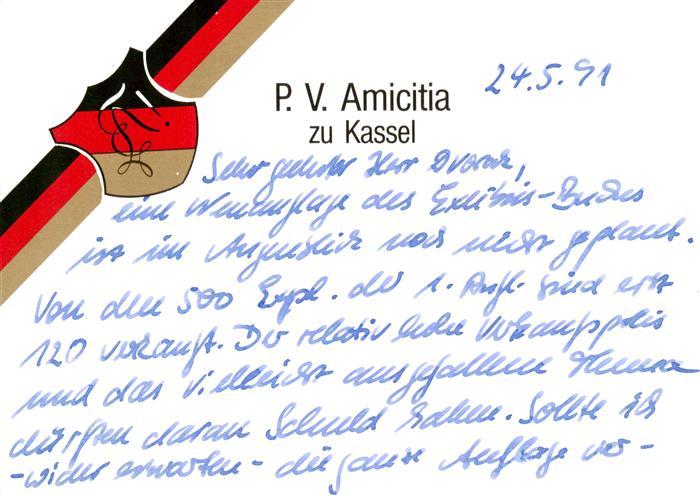 24.5.91
P. V. Amicitia
zu Kassel
Sehr geehrter Herr Dvorak,
eine Neuauflage des Exlibris-Buches
ist im Augenblick noch nicht geplant.
Von den 500 Expl. der 1. Aufl. sind erst
120 verkauft. Der relativ hohe Verkaufspreis
und das vielleicht ausgefallene Thema
dürften daran Schuld haben. Sollte ich
-wider erwarten- die ganze Auflage ver-